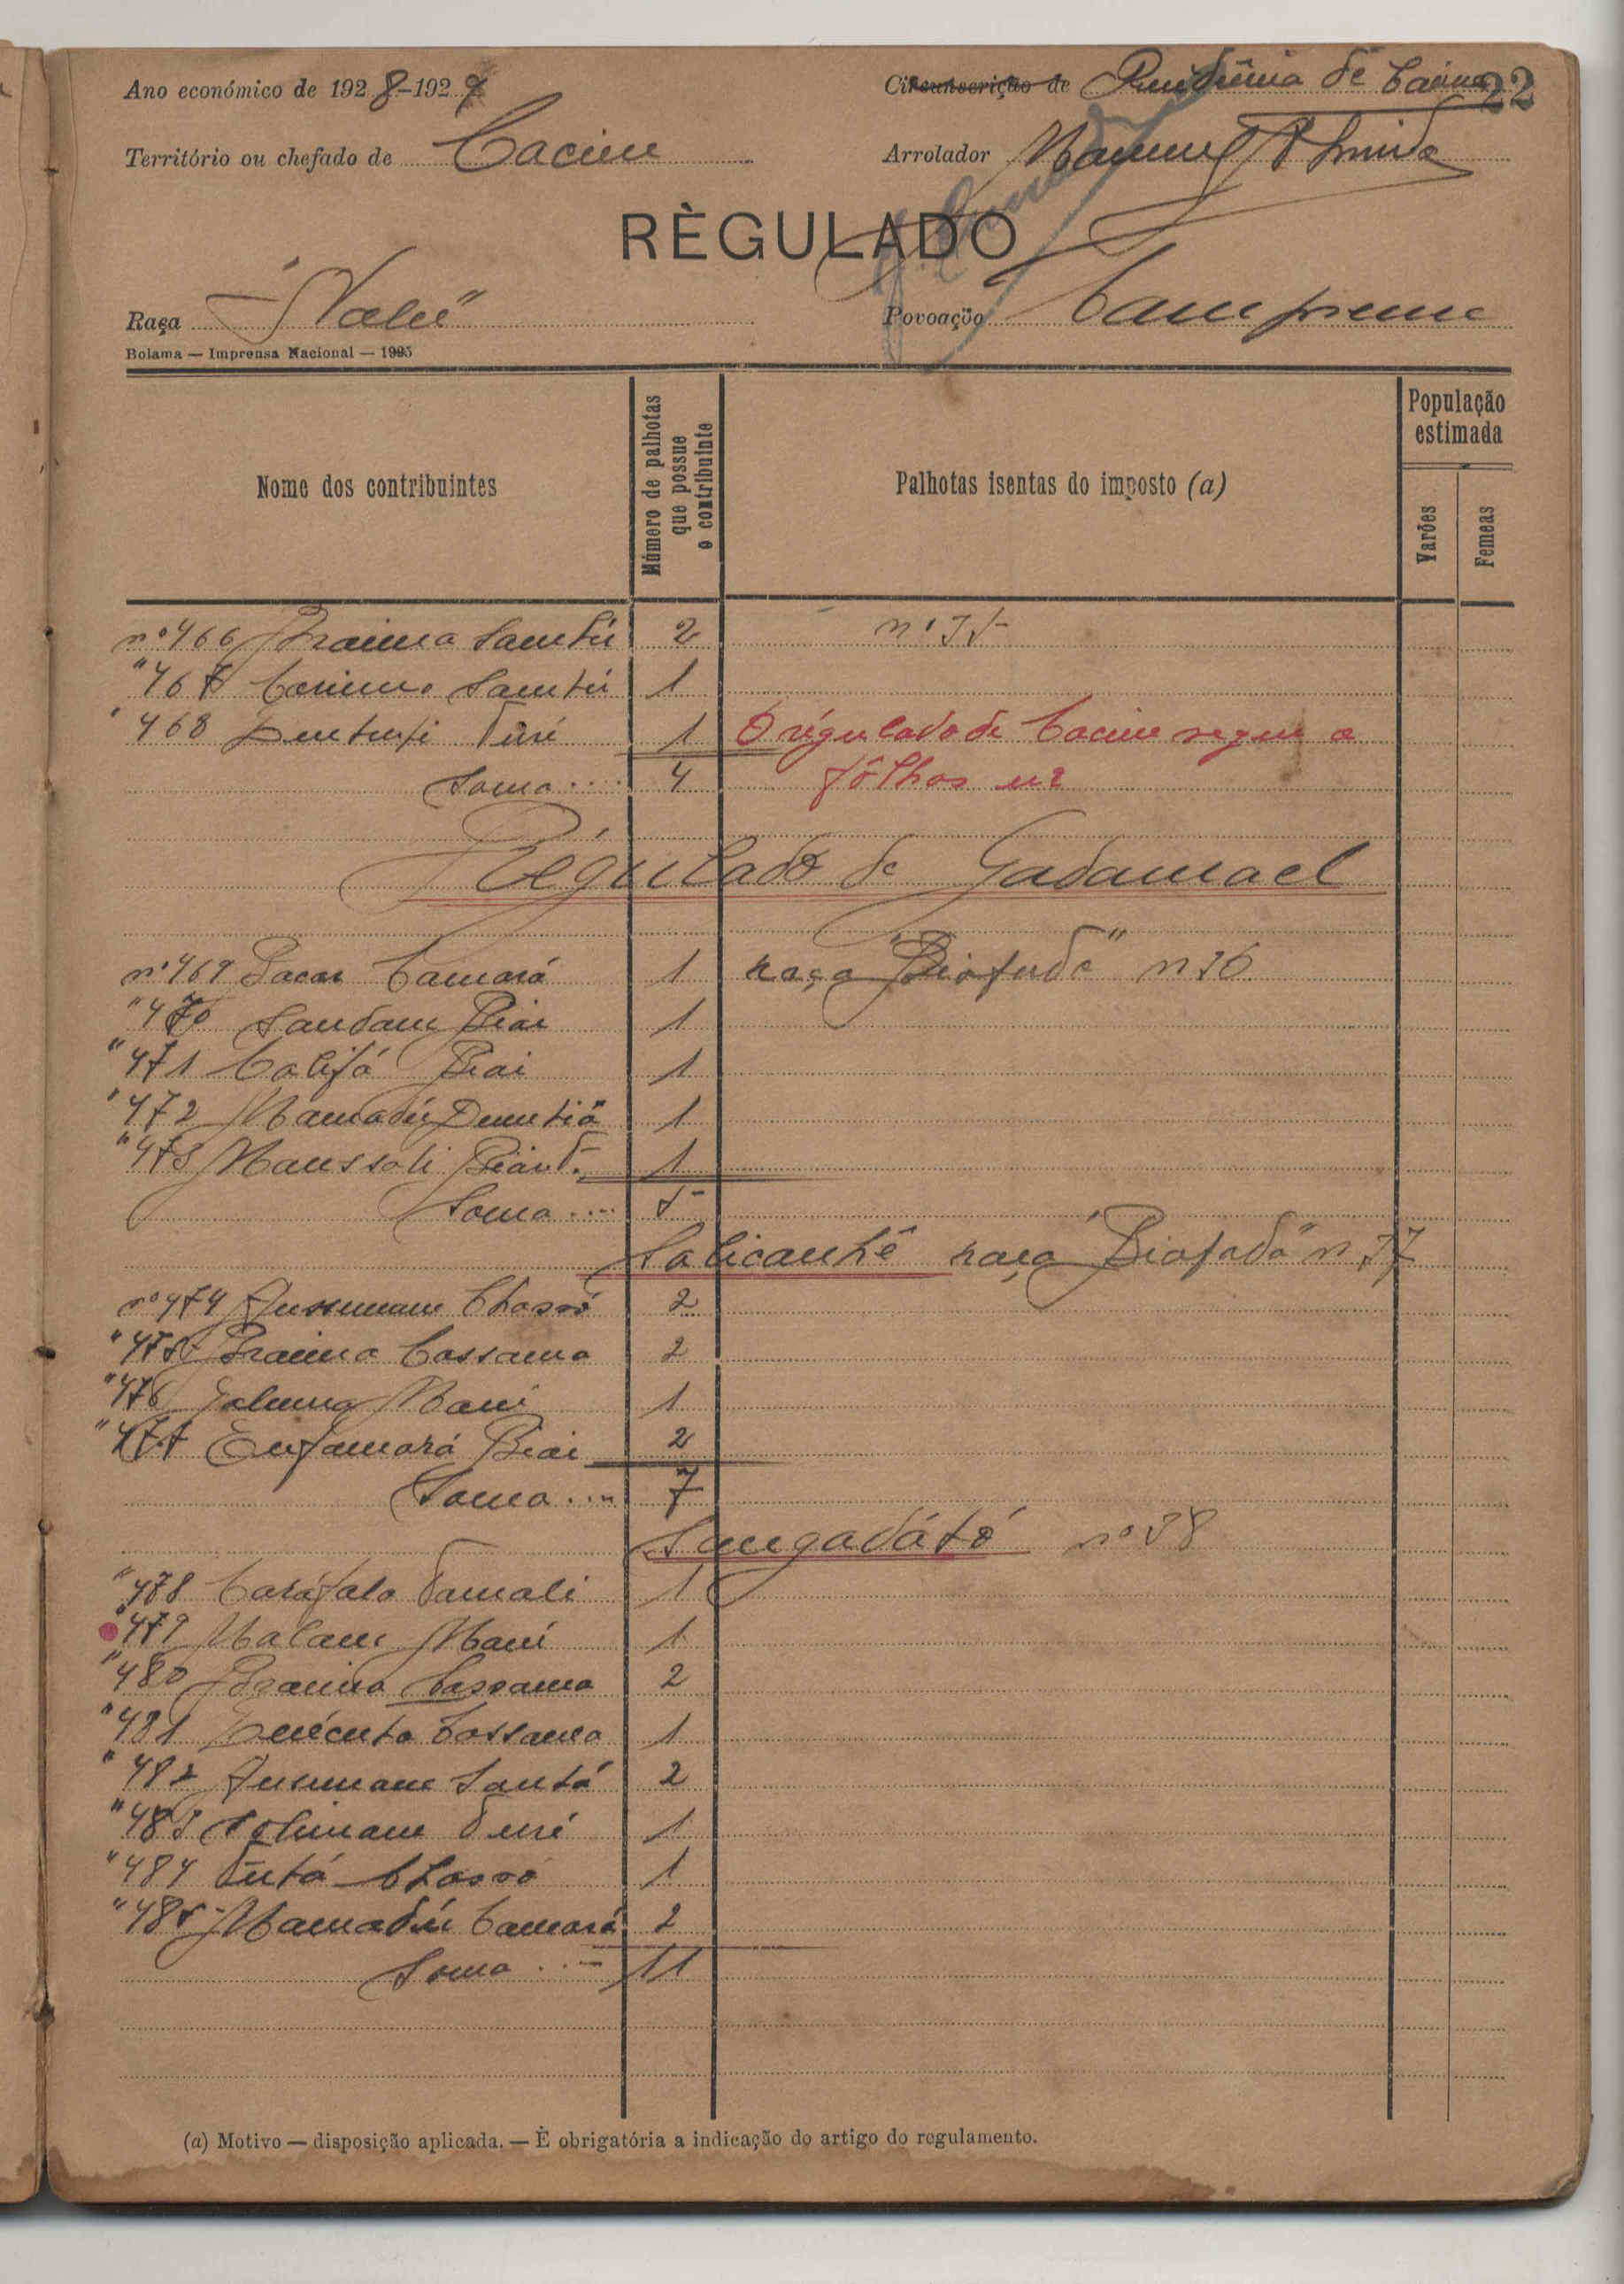 22
Ano económico de 1928-1929
Circunscrição de Residência de Cacine
Território ou chefado de Cacine
Arrolador Manuel
RÈGULADO
Raça "Nalú"
Povoação Campreme
Bolama — Imprensa Nacional — 1925
Nome dos contribuintes
Número de palhotas que possue o contribuinte
Palhotas isentas do imposto (a)
População estimada
Varões
Femeas
nº 466 Braima Samtú 2 nº 35
" 467 Carimo Samtú 1
" 468 Turé 1 O régulado de Cacine segue a
Soma .... 4 fôlhas
Régulado de Gadamael
nº 469 Bacar Camará 1 raça "Biafada" nº 36
" 470 Sandam Biai 1
" 471 Califá Biai 1
" 472 Mamadú 1
" 473 Manssali 1
Soma .... 5
Salicanhê raça "Biafada" nº 37
nº 474 Jussumane 2
" 475 Braima Cassama 2
" 476 Mané 1
" 477 Enfamará Biai 2
Soma .... 7
Sangadátó nº 38
" 478 1
" 479 Malam Mané 1
" 480 Braima Cassama 2
" 481 Cassama 1
" 482 Jussumane Santá 2
" 483 Solimane Turé 1
" 484 Tutá 1
" 485 Mamadú Camará 2
Soma .... 11
(a) Motivo — disposição aplicada. — È obrigatória a indicação do artigo do regulamento.